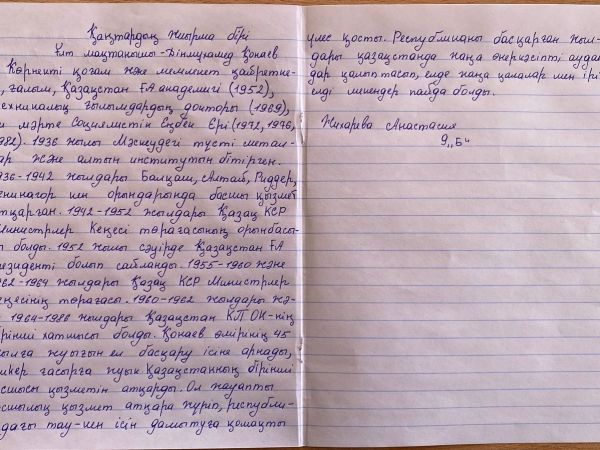 Қаңтардың жиырма бірі
Ұлт мақтанышы - Дінмұхамед Қонаев
Көрнекті қоғам және мемлекет қайраткe-
і, ғалым, Қазақстан ҒА академигі (1952),
ехникалық ғылымдардың докторы (1969),
ш мәрте Социалистін Еңбек Ері (1972, 1976,
982). 1936 жылы Мәскеудегі түсті метал-
ар және алтын институтын бітірген.
936-1942 жылдары Балқаш, Алтай, Риддер,
енинагор кен орындарында басшы қызмет
тқарған. 1942-1952 жылдары Қазақ КСР
Министрлер Кеңесі төрағасының орынбаса-
ы болды. 1952 жылы сәуірде Қазақстан ҒА
резиденті болып сайланды. 1955-1960 және
962-1964 жылдары Қазақ КСР Министрлер
еңесінің төрағасы. 1960-1962 жылдары жә-
е 1964-1986 жылдары Қазақстан КП ОК-нің
ірінші хатшысы болды. Қонаев өмірінің 45
ылға жуығын ел басқару ісіне арнады,
иркер ғасырға жуық Қазақстанның бірінші
асшысы қызметін атқарды. Ол жауапты
асшылық қызмет атқара жүріп, республи-
адағы тау-кен ісін дамытуға қомақты
үлес қосты. Республиканы басқарған жыл-
дары қазақстанда жаңа өнеркәсіпті аудан
дар қалыптасып, елде жаңа қалалар мен ірі
елді мекендер пайда болды.
Жихарева Анастасия
9 „Б"